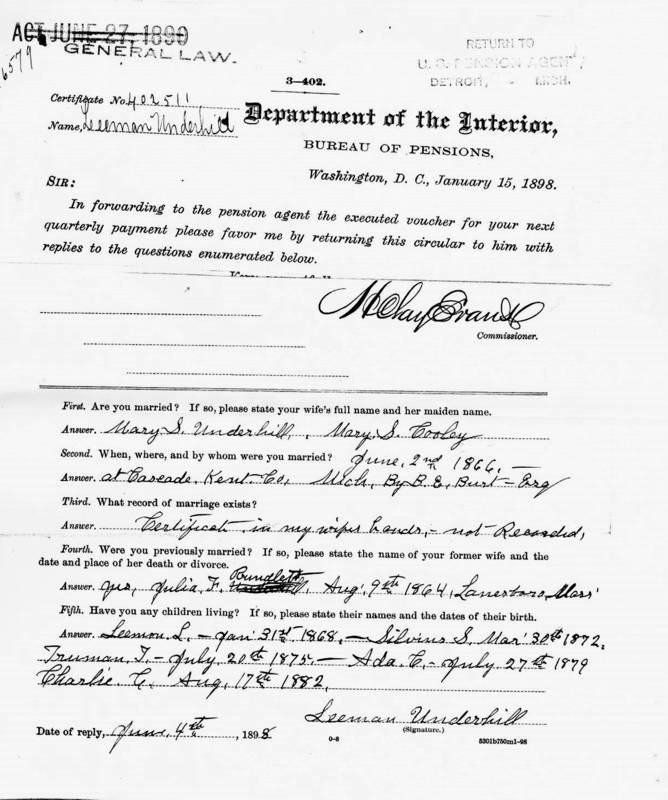 ACT JUNE 27, 1890
GENERAL LAW.
6579
RETURN TO
U.S. PENSION AGENT,
DETROIT, - MICH.
3—402.
Certificate No. 402511,
Name, Leeman Underhill
Department of the Interior,
BUREAU OF PENSIONS,
Washington, D. C., January 15, 1898.
SIR:
In forwarding to the pension agent the executed voucher for your next
quarterly payment please favor me by returning this circular to him with
replies to the questions enumerated below.
H Clay Evans
Commissioner.
First. Are you married? If so, please state your wife's full name and her maiden name.
Answer. Mary S. Underhill, Mary S. Cooley
Second. When, where, and by whom were you married? June, 2nd 1866, —
Answer. at Cascade, Kent Co, Mich, By B. E, Burt - Esq
Third. What record of marriage exists?
Answer. Certificat in my wifes hands, - not Recorded,
Fourth. Were you previously married? If so, please state the name of your former wife and the
date and place of her death or divorce.
Answer. yes, Julia F. Rundlett Aug' 9th 1864, Lanesboro, Mass'
Fifth. Have you any children living? If so, please state their names and the dates of their birth.
Answer. Leemon L. - Jan' 31st 1868, - Silvius S. Mar' 30th 1872,
Truman, T. - July 20th 1875 - Ada. C. - July 27th 1879
Charlie C, Aug, 17th 1882,
Leeman Underhill
Date of reply, June, 4th, 1898
(Signature.)
0-8
5301b750m1-98